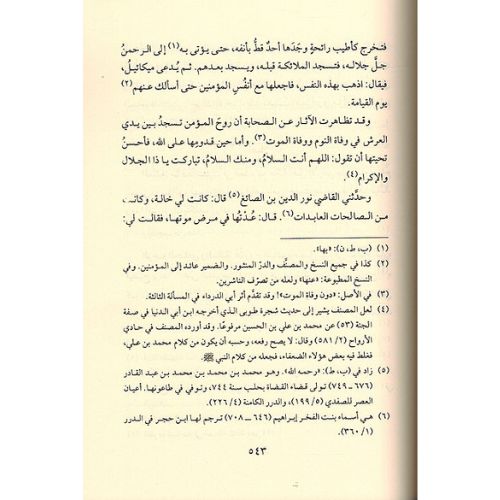 فتخرج كأطيب رائحةٍ وجَدَها أحدٌ قطُّ بأنفه، حتى يؤتى به(١) إلى الرحمنُ
جلَّ جلاله، فتسجد الملائكة قبله، ويسجد بعدهم. ثم يُدعى ميكائيلُ،
فيقال: اذهب بهذه النفس، فاجعلها مع أنفُسِ المؤمنين حتى أسألك عنهم(٢)
يوم القيامة.
وقد تظاهرت الآثار عن الصحابة أن روحَ المؤمن تسجدُ بين يدي
العرش في وفاة النوم ووفاة الموت(٣). وأما حين قدومِها على الله، فأحسنُ
تحيتها أن تقول: اللهم أنت السلامُ، ومنك السلامُ، تباركت يا ذا الجلال
والإكرام(٤).
وحدَّثني القاضي نور الدين بن الصائغ(٥) قال: كانت لي خالة، وكانت
من الصالحات العابدات(٦). قال: عُدْتُها في مرض موتها، فقالت لي:
(١) (ب، ط، ن): «بها».
(٢) كذا في جميع النسخ والمصنَّف والدرّ المنثور. والضمير عائد إلى المؤمنين. وفي
النسخ المطبوعة: «عنها» ولعله من تصرّف الناشرين.
(٣) في الأصل: «دون وفاة الموت»! وقد تقدَّم أثر أبي الدرداء في المسألة الثالثة.
(٤) لعل المصنف يشير إلى حديث شجرة طوبى الذي أخرجه ابن أبي الدنيا في صفة
الجنة (٥٣) عن محمد بن علي بن الحسين مرفوعًا. وقد أورده المصنف في حادي
الأرواح (٥٨١/٢) وقال: لا يصح رفعه، وحسبه أن يكون من كلام محمد بن علي،
فغلط فيه بعض هؤلاء الضعفاء، فجعله من كلام النبي ﷺ.
(٥) زاد في (ب، ط): «رحمه الله». وهو محمد بن محمد بن محمد بن عبد القادر
(٦٧٦ ـ ٧٤٩) تولى قضاء القضاة بحلب سنة ٧٤٤، وتوفي في طاعونها. أعيان
العصر للصفدي (١٩٩/٥)، والدرر الكامنة (٢٢٦/٤).
(٦) هي أسماء بنت الفخر إبراهيم (٦٤٦ ـ ٧٠٨) ترجم لها ابن حجر في الدرر
(٣٦٠/١).
٥٤٣